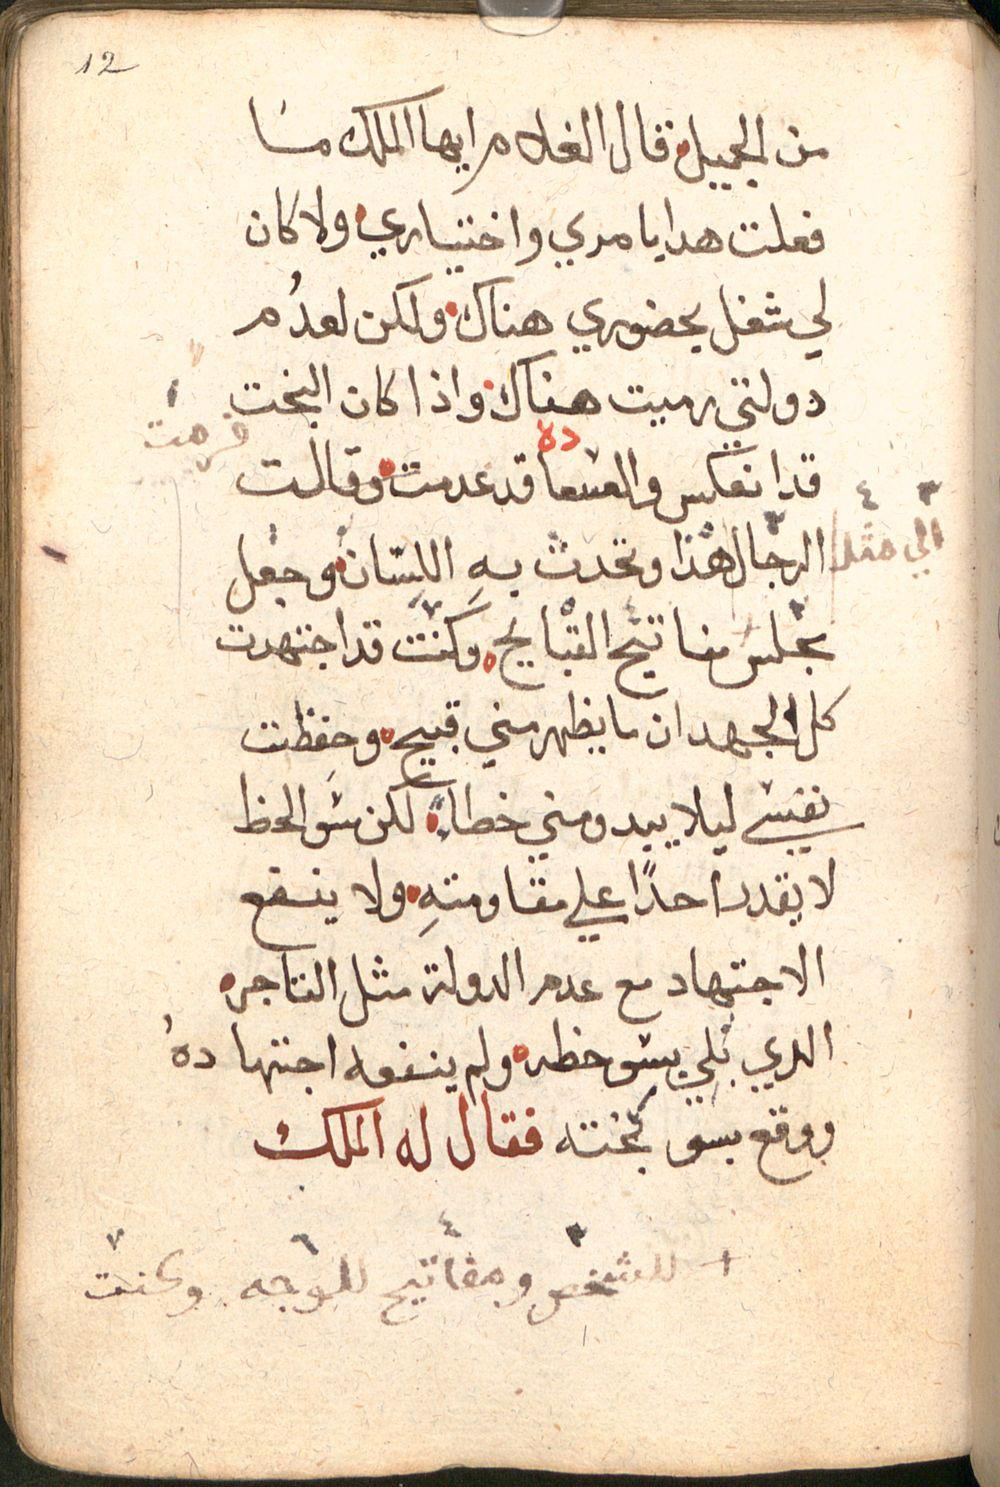 12
من الجميل قال الغلام ايها الملك ما
فعلت هدا يامري واختياري ولا كان
لي شغل بحضوري هناك ولكن لعدُم
دولتي رميت هناك واذا كان البخت
قد انعكس والسعاده قد عدمت وقالت
الرجال هذا وتحدث بهِ اللسان وجعل
مجلس مفاتيح القبايح وكنت قد اجتهدت
كل الجهد ان ما يظهر مني قبيح وحفظت
نفسي ليلا يبدو مني خطاء لكن سو الحظ
لا يقدر احدًا علي مقاومتهِ ولا ينفع
الاجتهاد مع عدم الدولة مثل التاجر
الدي بُلي بسو حظه ولم ينفعه اجتهاده
ووقع بسو بخته فقال له الملك
الي مثل
٣ ٤
+ للشخص ومفاتيح للوجه وكنت
٣ ٤ ٦ ٧